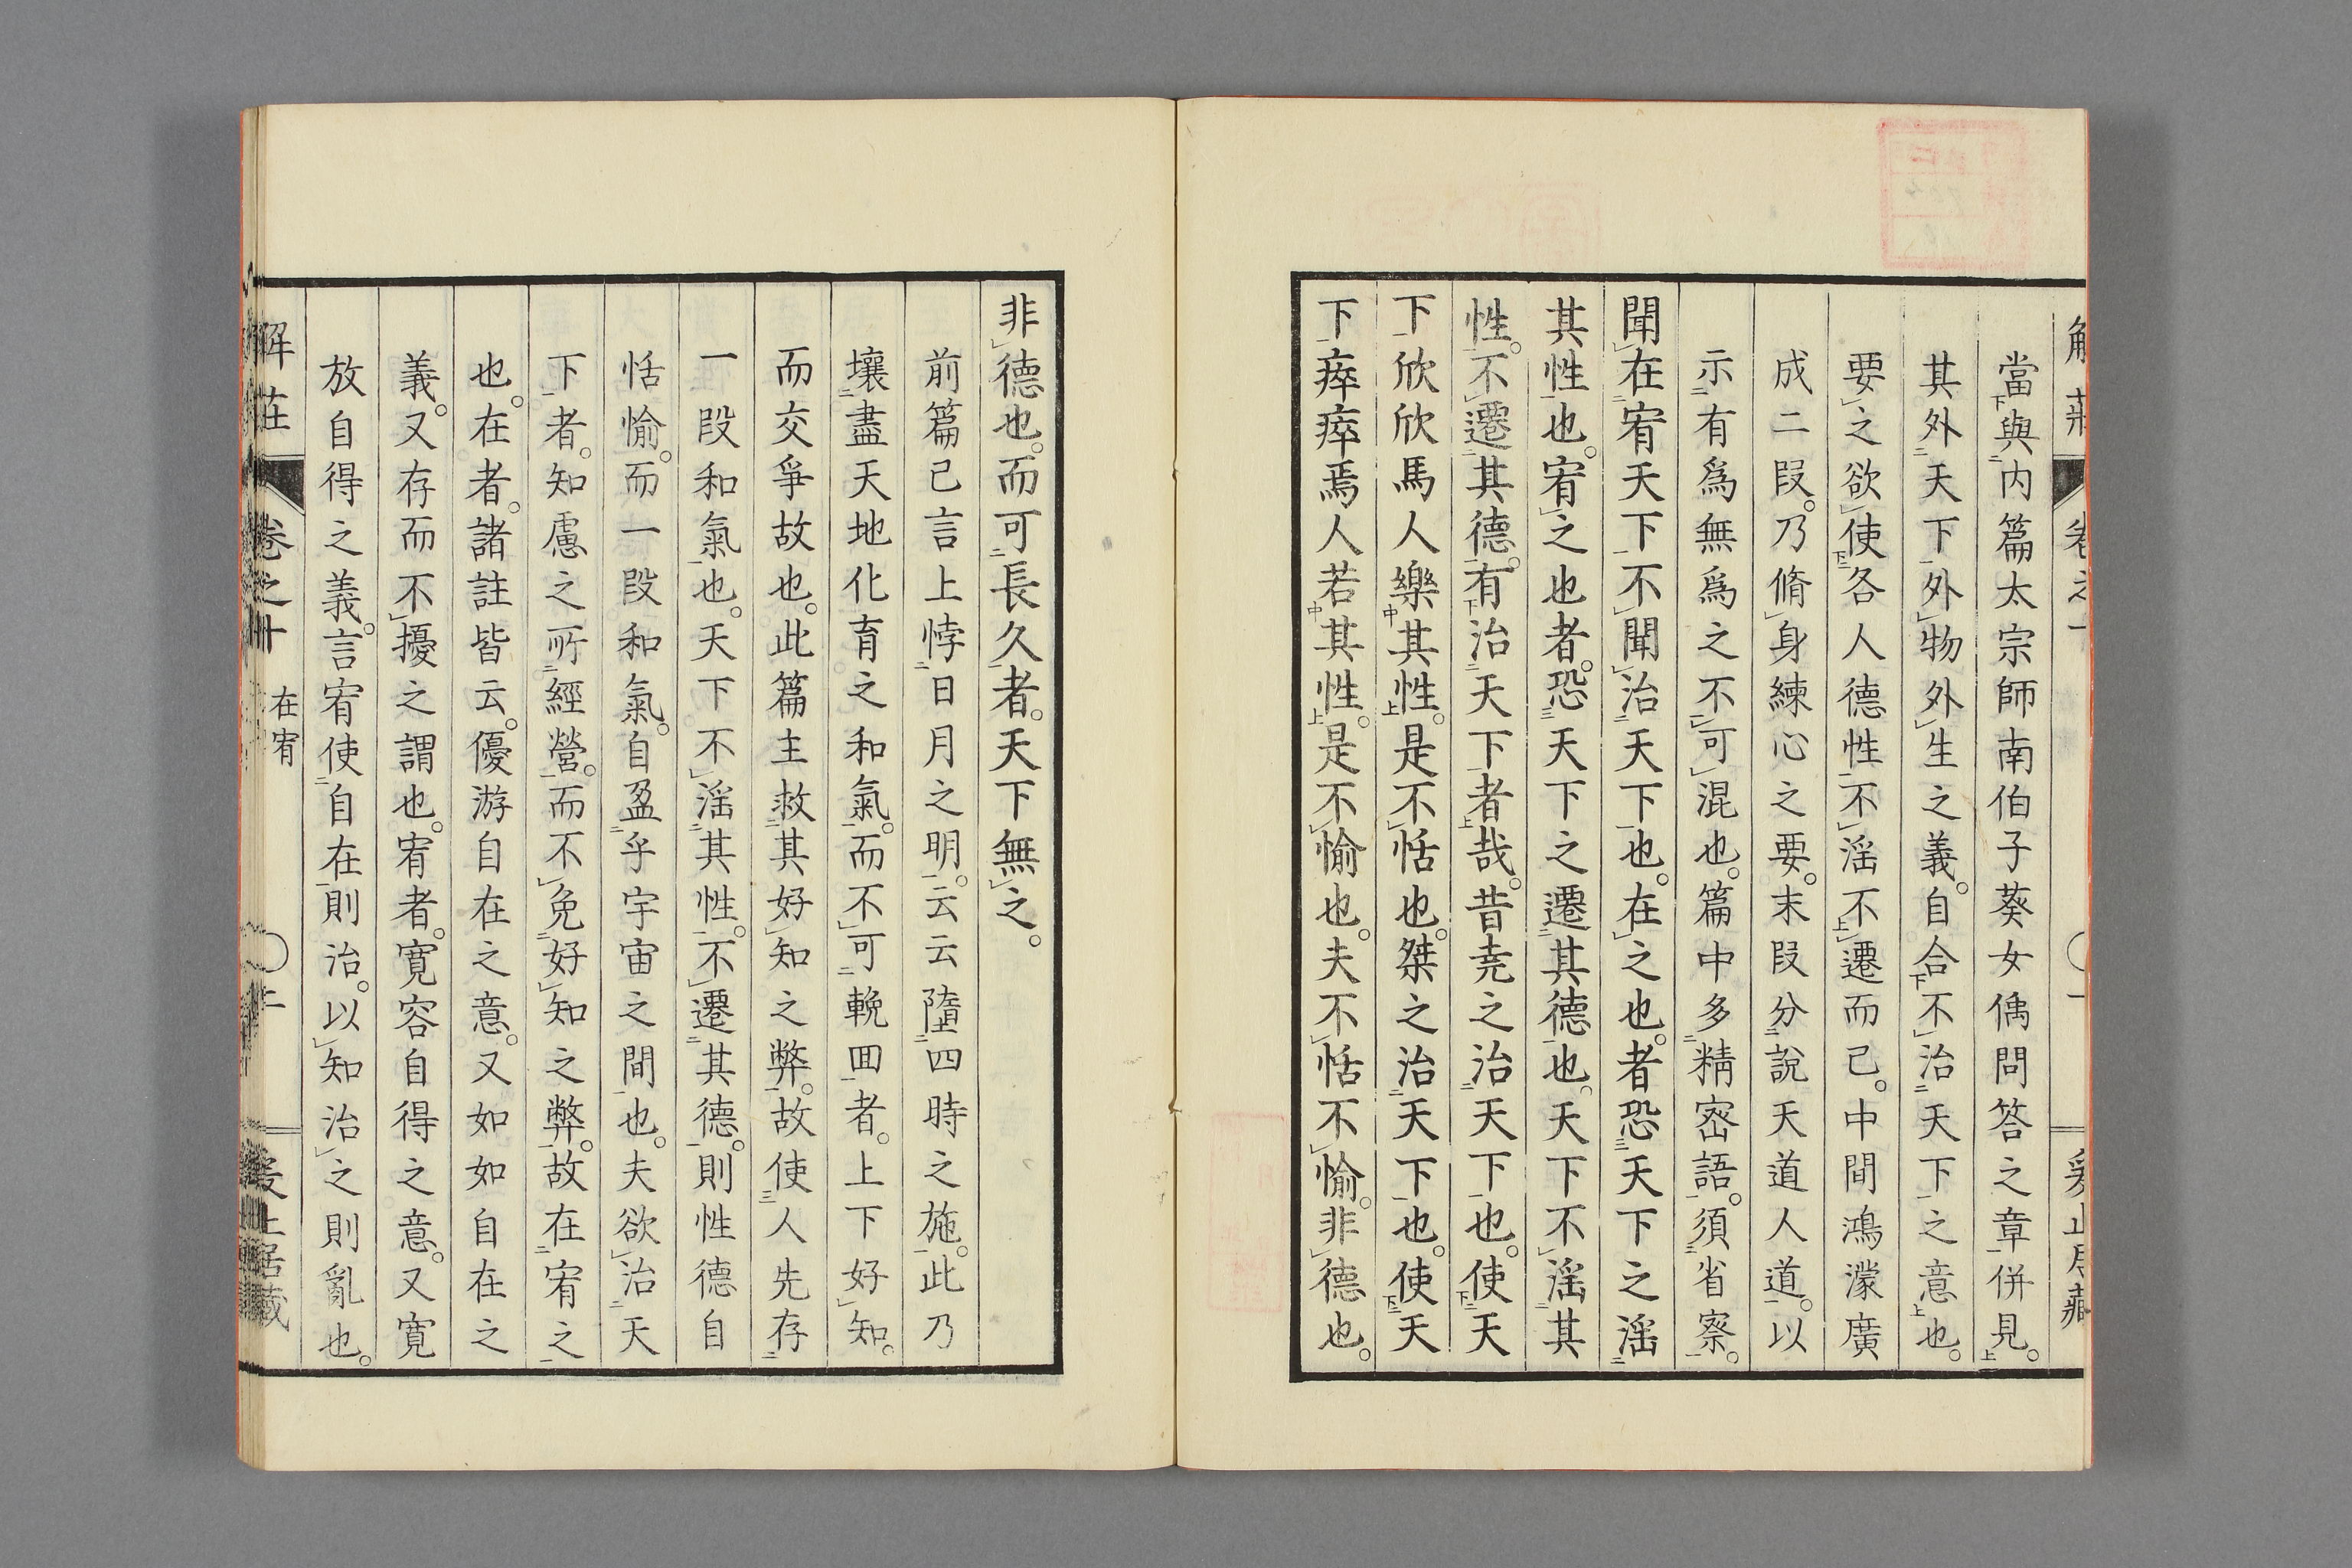 當與内篇太宗師南伯子葵女偊問答之章併見。
其外天下外物外生之義。自合不治天下之意也。
要之欲使各人德性不淫不遷而已。中間鴻濛廣
成二段。乃脩身練心之要。末段分說天道人道。以
示有爲無爲之不可混也。篇中多精密語。須省察。
聞在宥天下不聞治天下也。在之也。者恐天下之淫
其性也。宥之也者。恐天下之遷其德也。天下不淫其
性。不遷其德。有治天下者哉。昔堯之治天下也。使天
下欣欣馬人樂其性。是不恬也。桀之治天下也。使天
下瘁瘁焉人若其性。是不愉也。夫不恬不愉。非德也。
非德也。而可長久者。天下無之。
前篇已言上悖日月之明。云云墮四時之施。此乃
壤盡天地化育之和氣。而不可輓回者。上下好知。
而交爭故也。此篇主救其好知之弊。故使人先存
一段和氣也。天下不淫其性。不遷其德。則性德自
恬愉。而一段和氣。自盈乎宇宙之間也。夫欲治天
下者。知慮之所經營。而不免好知之弊。故在宥之
也。在者。諸註皆云。優游自在之意。又如如自在之
義。又存而不擾之謂也。宥者。寬容自得之意。又寬
放自得之義。言宥使自在則治。以知治之則亂也。
解莊
卷之十
在宥